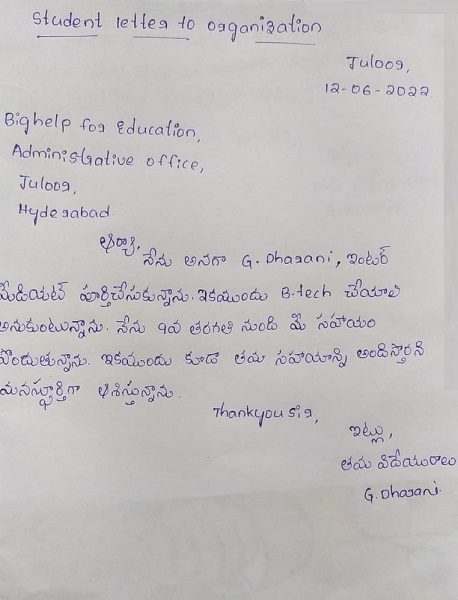 Student letter to organization
Juloor,
12-06-2022
Bighelp for Education,
Administrative office,
Juloor,
Hyderabad.
ఆర్యా,
నేను అనగా G. Dharani, ఇంటర్
మీడియట్ పూర్తిచేసుకున్నాను. ఇకముందు B.tech చేయాలి
అనుకుంటున్నాను. నేను 9వ తరగతి నుండి మీ సహాయం
పొందుతున్నాను. ఇకముందు కూడా తమ సహాయాన్ని అందిస్తారని
మనస్ఫూర్తిగా ఆశిస్తున్నాను.
Thankyou sir,
ఇట్లు,
తమ విదేయురాలు
G. Dharani.